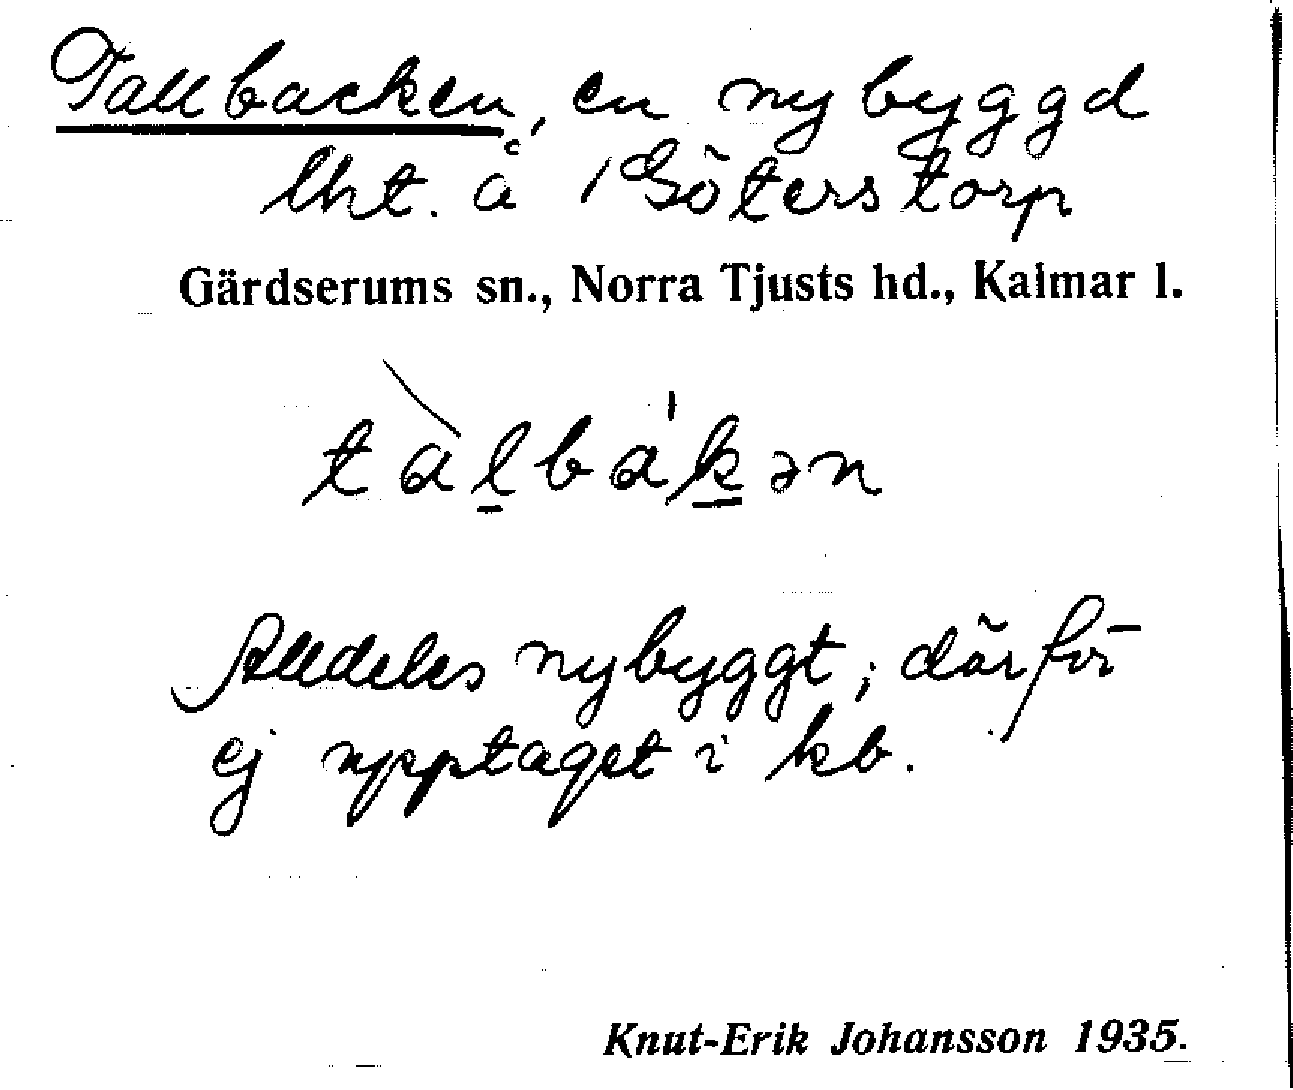 Tallbacken, en nybyggd
lht. å 1 Göterstorp
Gärdserums sn., Norra Tjusts hd., Kalmar l.
tàl̠bá'k̠ən
Alldeles nybyggt; därför
ej upptaget i kb.
Knut-Erik Johansson 1935.